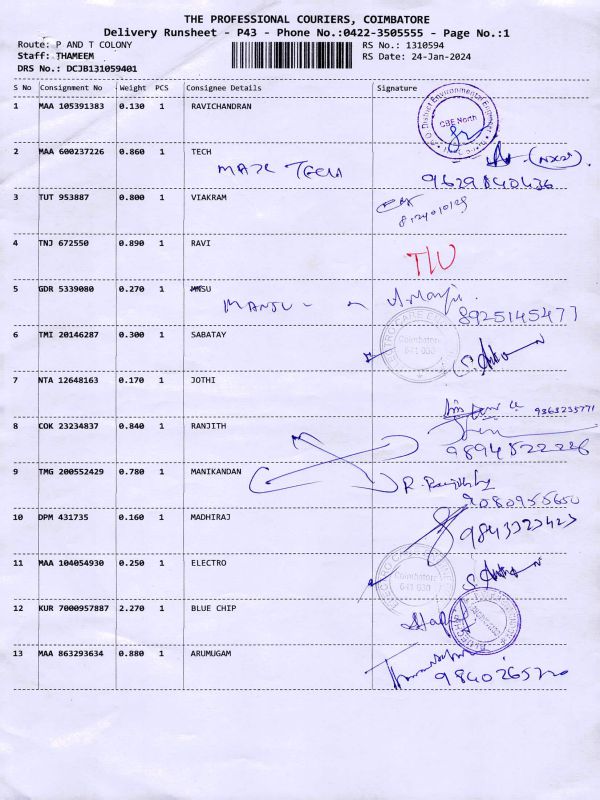 THE PROFESSIONAL COURIERS, COIMBATORE
Delivery Runsheet - P43 - Phone No.:0422-3505555 - Page No.:1
Route: P AND T COLONY RS No.: 1310594
Staff: THAMEEM RS Date: 24-Jan-2024
DRS No.: DCJB131059401
S No Consignment No Weight PCS Consignee Details Signature
1 MAA 105391383 0.130 1 RAVICHANDRAN
CBE North
2 MAA 600237226 0.860 1 TECH
9629840436
3 TUT 953887 0.800 1 VIAKRAM
4 TNJ 672550 0.890 1 RAVI
5 GDR 5339080 0.270 1 MNSU
MANJU
8925145477
6 TMI 20146287 0.300 1 SABATAY
Coimbatore
641 030
7 NTA 12648163 0.170 1 JOTHI
9363235771
8 COK 23234837 0.840 1 RANJITH
9894522226
9 TMG 200552429 0.780 1 MANIKANDAN
9080955650
10 DPM 431735 0.160 1 MADHIRAJ
9843323423
11 MAA 104054930 0.250 1 ELECTRO
Coimbatore
641 030
12 KUR 7000957887 2.270 1 BLUE CHIP
13 MAA 863293634 0.880 1 ARUMUGAM